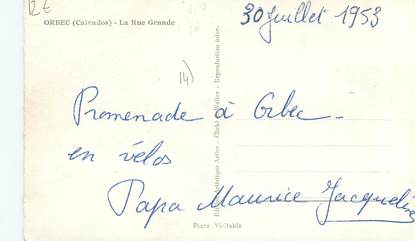 12 €
ORBEC (Calvados) - La Rue Grande
30 Juillet 1953
14)
Promenade à Orbec -
en vélos
Papa Maurice Jacqueline
Artistique Atelier - Cliché - Reproduction inter.
Photo Véritable